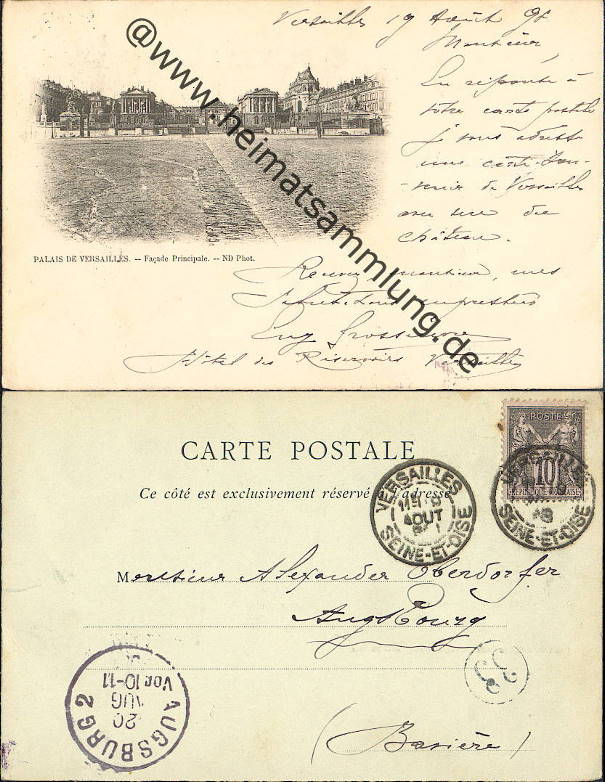 Versailles 19 Août 98
Monsieur,
En réponse à
votre carte postale
je vous adresse
une carte-Sou-
venir de Versailles
avec vue du
château.
Recevez, monsieur, mes
salutations empressées
Eug
Hôtel des Réservoirs Versailles
PALAIS DE VERSAILLES. — Façade Principale. — ND Phot.
@www.heimatsammlung.de
CARTE POSTALE
Ce côté est exclusivement réservé à l'adresse
POSTES
10
VERSAILLES
AOUT
SEINE-ET-OISE
VERSAILLES
98
SEINE-ET-OISE
Monsieur Alexander Oberdorfer
Augsbourg
(Bavière)
33
AUGSBURG 2
20
AUG
Vor 10-11